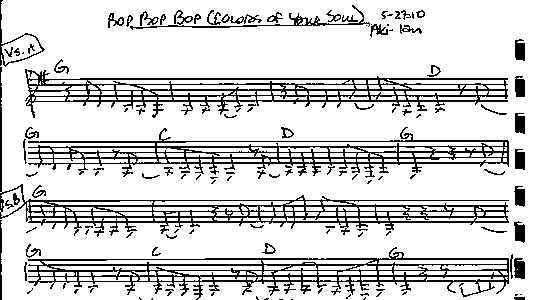 BOP BOP BOP (COLORS OF YOUR SOUL) 5-27-10
Vs. A
G D
G C D G
G
G C D G